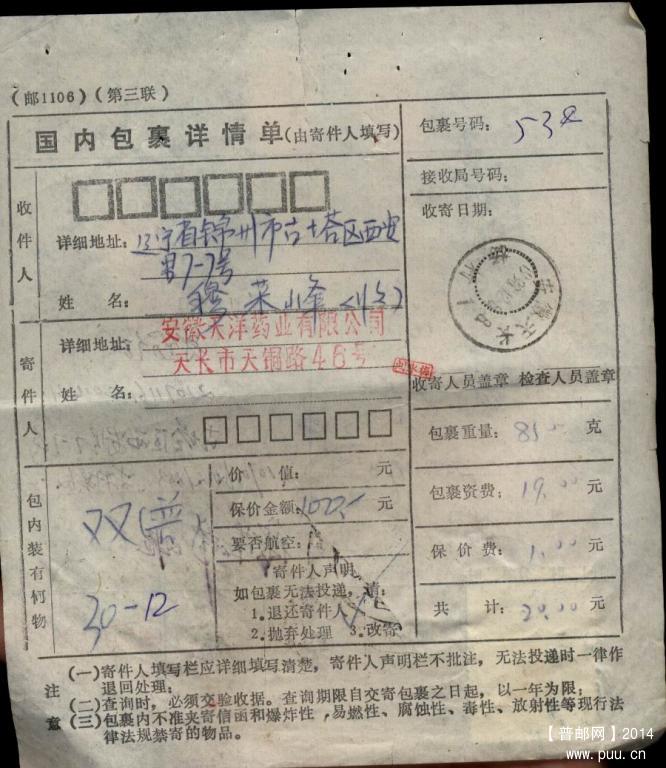 (邮1106)(第三联)
国内包裹详情单(由寄件人填写)
包裹号码:
接收局号码:
收寄日期:
收件人
详细地址:辽宁省锦州市古塔区西安
里7-7号
姓 名:
寄件人
详细地址:安徽天洋药业有限公司
天长市天铜路46号
姓 名:
收寄人员盖章 检查人员盖章
包裹重量: 克
包裹资费:19.00元
保 价 费:1.00元
共 计:20.00元
包内装有何物
双普
30-12
价 值: 元
保价金额:100.- 元
要否航空:
寄件人声明
如包裹无法投递,请:
1.退还寄件人
2.抛弃处理 3.改寄
注意
(一)寄件人填写栏应详细填写清楚,寄件人声明栏不批注,无法投递时一律作
退回处理;
(二)查询时,必须交验收据。查询期限自交寄包裹之日起,以一年为限;
(三)包裹内不准夹寄信函和爆炸性,易燃性、腐蚀性、毒性、放射性等现行法
律法规禁寄的物品。
【普邮网】2014
www.puu.cn